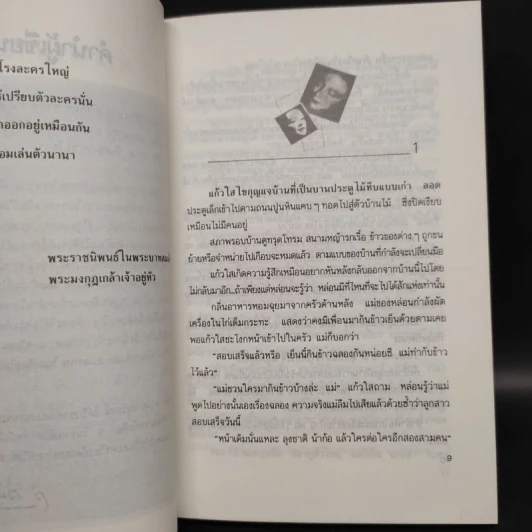 โรงละครใหญ่
เปรียบตัวละครนั่น
ออกอยู่เหมือนกัน
อมเล่นตัวนานา
พระราชนิพนธ์ในพระบาทสมเ
พระมงกุฎเกล้าเจ้าอยู่หัว
1
แก้วใสไขกุญแจบ้านที่เป็นบานประตูไม้ทึบแบบเก่า ลอด
ประตูเล็กเข้าไปตามถนนปูนหินแคบๆ ทอดไปสู่ตัวบ้านไม้ ซึ่งปิดเงียบ
เหมือนไม่มีคนอยู่
สภาพรอบบ้านดูทรุดโทรม สนามหญ้ารกเรื้อ ข้าวของต่างๆ ถูกขน
ย้ายหรือจำหน่ายไปเกือบจะหมดแล้ว ตามแบบของบ้านที่กำลังจะเปลี่ยนมือ
แก้วใสเกิดความรู้สึกเหมือนอยากหันหลังกลับออกจากบ้านนี้ไปโดย
ไม่กลับมาอีก..ถ้าเพียงแต่หล่อนจะรู้ว่า หล่อนมีที่ไหนที่จะไปได้สักแห่งเท่านั้น
กลิ่นอาหารหอมฉุยมาจากครัวด้านหลัง แม่ของหล่อนกำลังผัด
เครื่องในไก่เต็มกระทะ แสดงว่าคงมีเพื่อนมากินข้าวเย็นด้วยตามเคย
พอแก้วใสชะโงกหน้าเข้าไปในครัว แม่ก็บอกว่า
"สอบเสร็จแล้วหรือ เย็นนี้กินข้าวฉลองกันหน่อยซี แม่ทำกับข้าว
ไว้แล้ว"
"แม่ชวนใครมากินข้าวบ้างล่ะ แม่" แก้วใสถาม หล่อนรู้ว่าแม่
พูดไปอย่างนั้นเองเรื่องฉลอง ความจริงแม่ลืมไปเสียแล้วด้วยซ้ำว่าลูกสาว
สอบเสร็จวันนี้
"หน้าเดิมนั่นแหละ ลุงชาติ น้าก้อ แล้วใครต่อใครอีกสองสามคน"
9